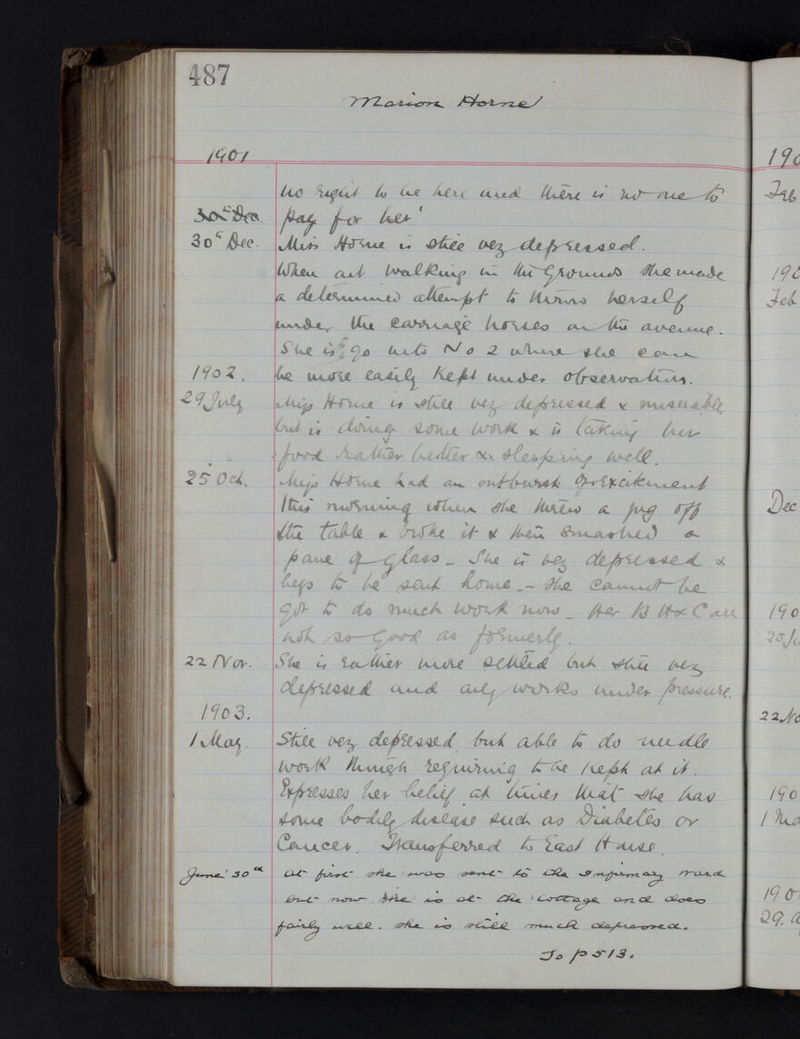 487
Marion Horne
1901
no right to be here and there is no one to
30th Dec. pay for her'
30th Dec. Miss Horne is still very depressed.
When out walking in the grounds she made
a determined attempt to throw herself
under the carriage horses on the avenue.
She is to go into No 2 where she can
1902. be more easily kept under observation.
29 July Miss Horne is still very depressed & miserable
but is doing some work & is taking her
food rather better & sleeping well.
25 Oct. Miss Horne had an outburst of excitement
this morning when she threw a jug off
the table & broke it & then smashed a
pane of glass - She is very depressed &
begs to be sent home. - She cannot be
got to do much work now - Her B H & C are
not so good as formerly.
22 Nov. She is rather more settled but still very
depressed and only works under pressure.
1903.
1 May. Still very depressed, but able to do needle
work though requiring to be kept at it.
Expresses her belief at times that she has
some bodily disease such as Diabetes or
Cancer. Transferred to East House.
June 30th At first she was sent to the Infirmary ward
but now she is at the cottage and does
fairly well. She is still much depressed.
To p 513.
190
Feb
190
Feb
Dec
190
22 No
190
1 Ma
190
29. A